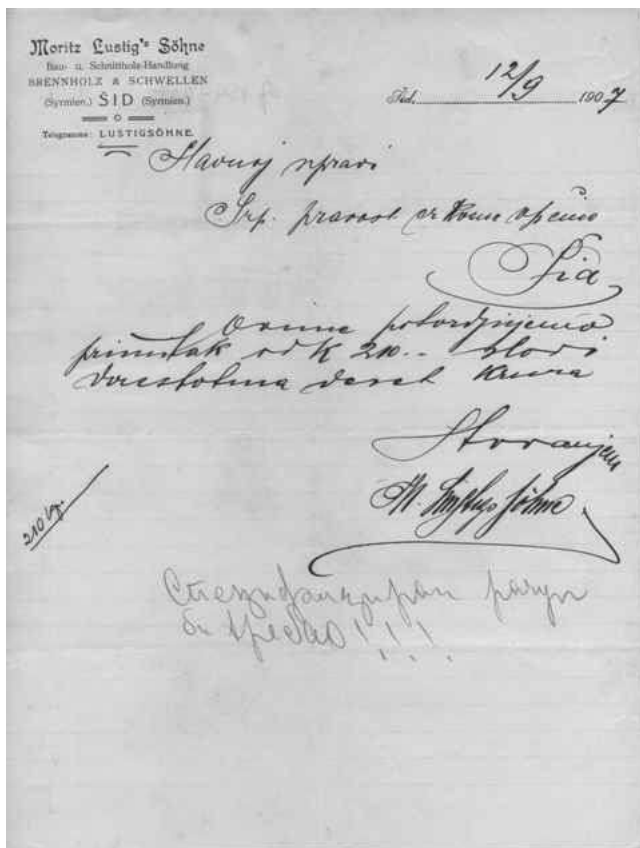 Moritz Lustig's Söhne
Bau- u. Schnittholz-Handlung
BRENNHOLZ & SCHWELLEN
(Syrmien.) ŠID (Syrmien.)
Telegramme: LUSTIGSÖHNE.
Šid, 12/9 1907
Slavnoj upravi
Srp. pravosl crkvene općine
Šid
Ovime potvrdjujemo
primitak od K 210.- slovi
dvestotina deset kruna
Štovanjem
M. Lustigs Söhne
210 kr.
Специфициран рачун
би требао!!!